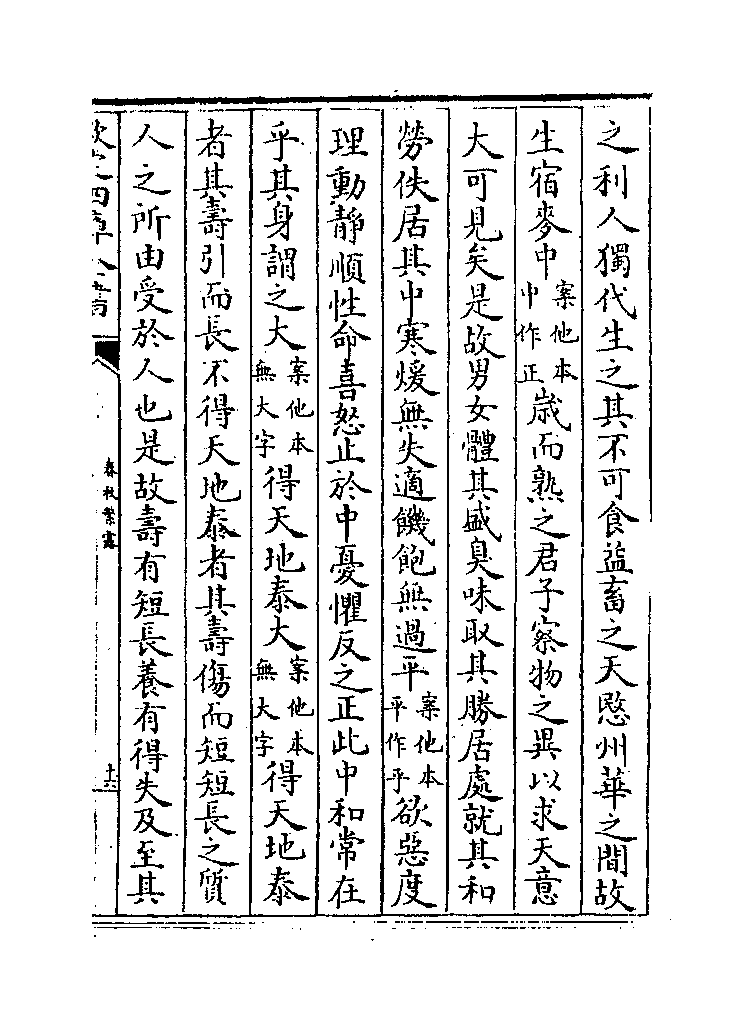 之利人獨代生之其不可食益畜之天愍州華之間故
生宿麥中案他本中作正歳而熟之君子察物之異以求天意
大可見矣是故男女體其盛臭味取其勝居處就其和
勞佚居其中寒煖無失適饑飽無過平案他本平作乎欲惡度
理動静順性命喜怒止於中憂懼反之正此中和常在
乎其身謂之大案他本無大字得天地泰大案他本無大字得天地泰
者其壽引而長不得天地泰者其壽傷而短短長之質
人之所由受於人也是故壽有短長養有得失及至其
欽定四庫全書
春秋繁露
十六